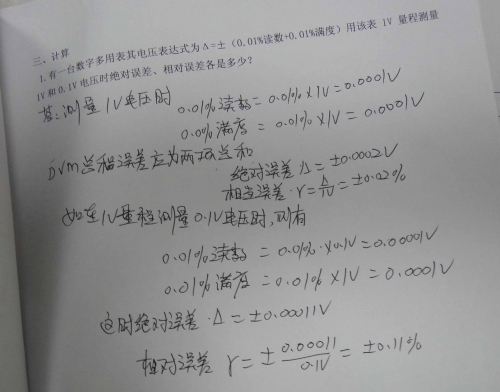 三、计算
1.有一台数字多用表其电压表达式为Δ=±（0.01%读数+0.01%满度）用该表 1V 量程测量
1V和0.1V电压时绝对误差、相对误差各是多少？
答:测量1V电压时
0.01%读数=0.01%×1V=0.0001V
0.0%满度=0.01%×1V=0.0001V
DVM总和误差应为两项总和
绝对误差Δ=±0.0002V
相对误差·r=Δ/1V=±0.02%
如在1V量程测量0.1V电压时,则有
0.01%读数=0.01%×0.1V=0.00001V
0.01%满度=0.01%×1V=0.0001V
这时绝对误差·Δ=±0.00011V
相对误差 r=±0.00011/0.1V=±0.11%